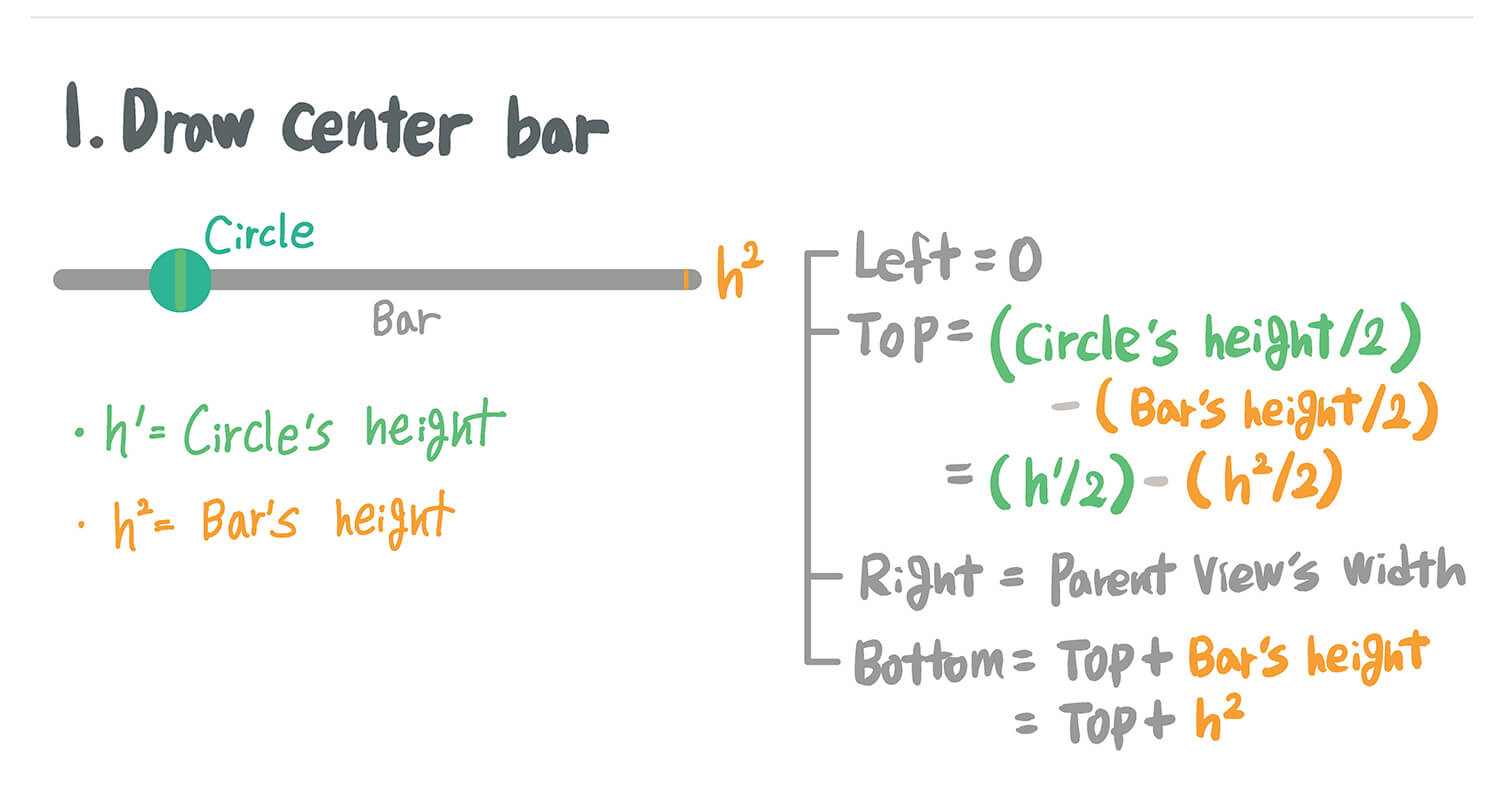 1. Draw center bar
Circle
h²
Bar
• h' = Circle's height
• h² = Bar's height
Left = 0
Top = (Circle's height/2)
- (Bar's height/2)
= (h'/2) - (h²/2)
Right = Parent View's width
Bottom = Top + Bar's height
= Top + h²